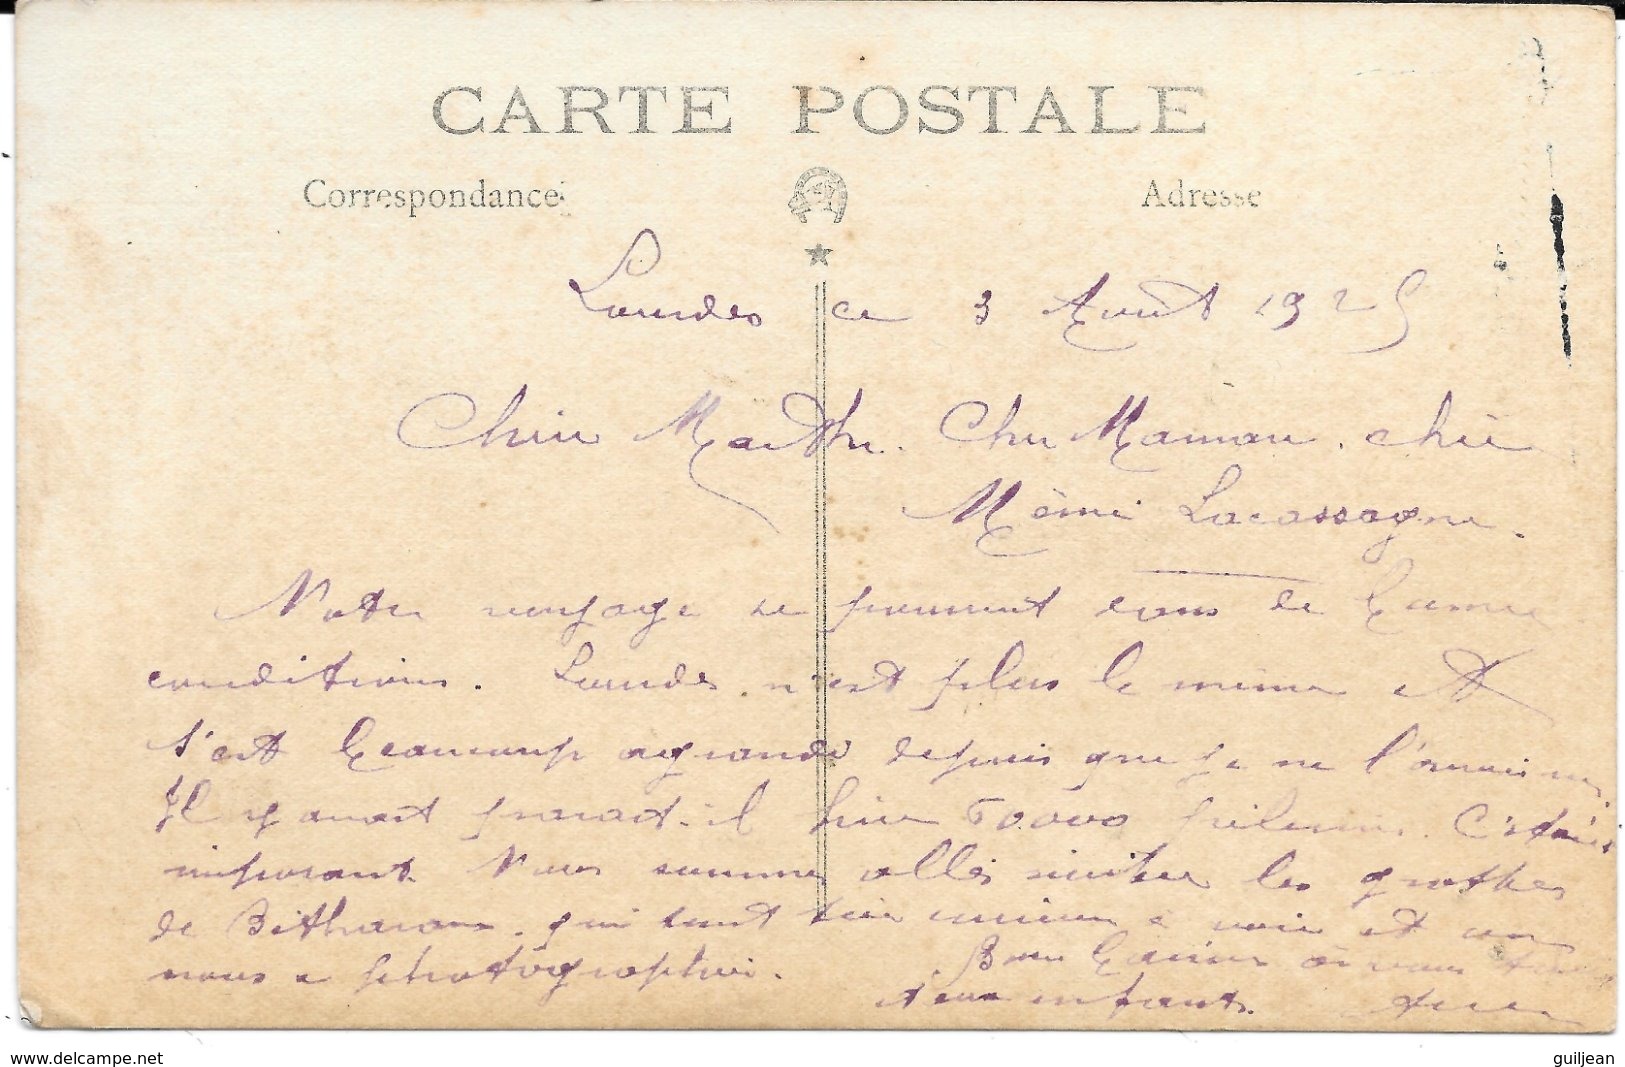 CARTE POSTALE
Correspondance
Adresse
Lourdes ce 3 Août 1925
Chère Marthe. Chère Maman. chère
Mémé Lacassagne.
Notre voyage se poursuit dans de bonnes
conditions. Lourdes n'est plus le même et
s'est beaucoup agrandi depuis que je ne l'avais vu
Il y avait parait-il hier 60.000 pélerins. C'était
imposant. Nous sommes allés visiter les grottes
de Bétharam. qui sont très curieuses à voir et on
nous a photographier.
Bons baisers à vous
deux enfants.
delcampe.net
guiljean